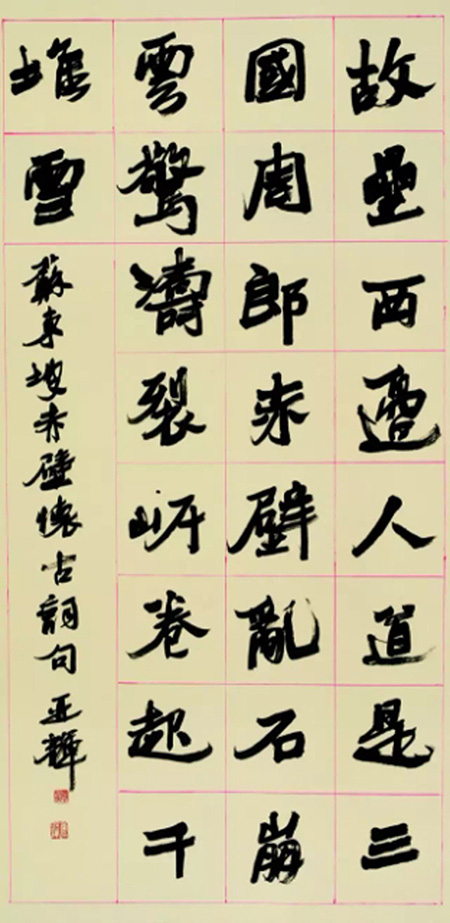 故壘西邊人道是三
國周郎赤壁亂石崩
雲驚濤裂岸卷起千
堆雪
蘇東坡赤壁懷古詞句 亞輝